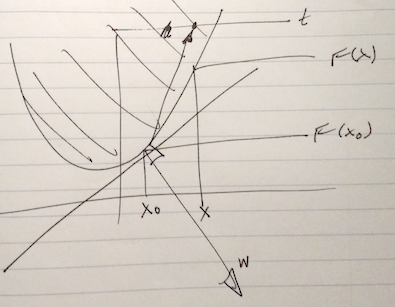 t
F(x)
F(x₀)
x₀
x
w